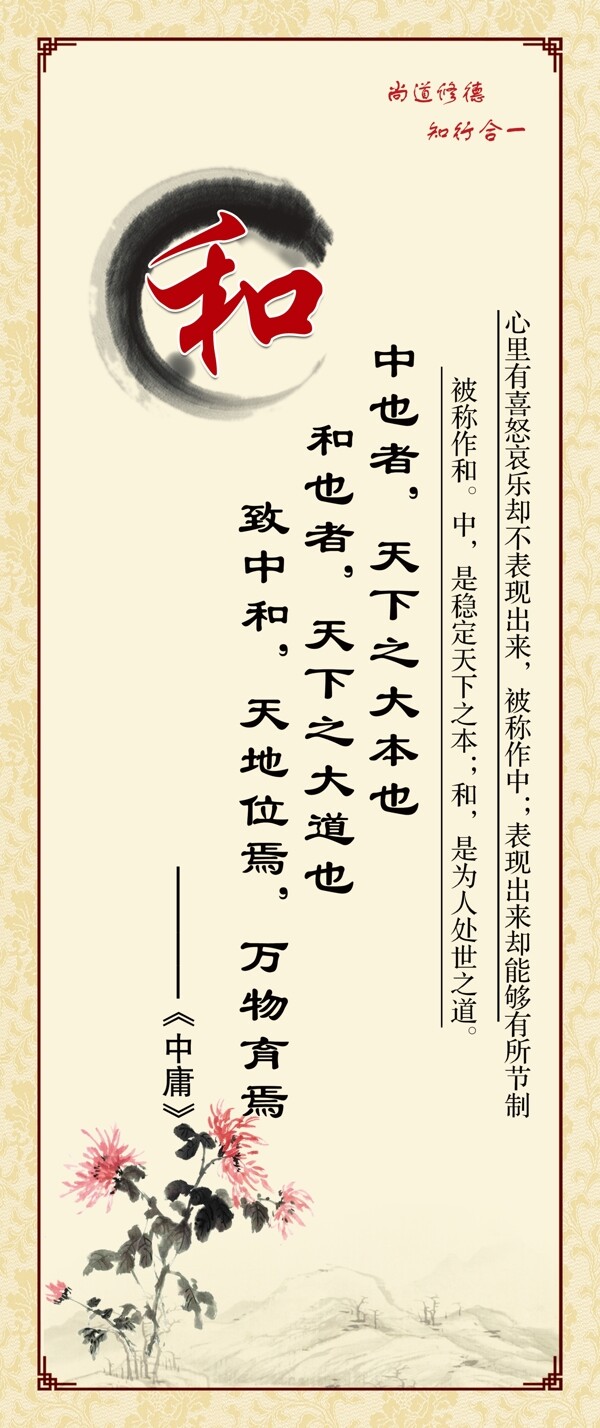 尚道修德
知行合一
和
心里有喜怒哀乐却不表现出来，被称作中；表现出来却能够有所节制
被称作和。中，是稳定天下之本；和，是为人处世之道。
中也者，天下之大本也
和也者，天下之大道也
致中和，天地位焉，万物育焉
——《中庸》